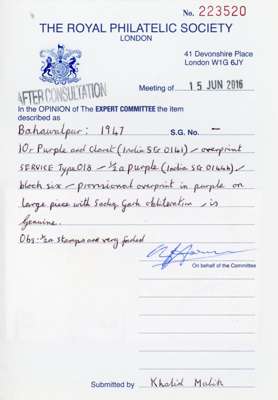 No. 223520
THE ROYAL PHILATELIC SOCIETY
LONDON
41 Devonshire Place
London W1G 6JY
AFTER CONSULTATION
Meeting of 15 JUN 2016
In the OPINION of The EXPERT COMMITTEE the item
described as
Bahawalpur: 1947 S.G. No. –
10r Purple and Claret (India SG O141) – overprint
SERVICE Type O18 – ½a purple (India SG O144b) –
block six – provisional overprint in purple on
large piece with Sadiq Garh obliteration, is
Genuine.
Obs: ½a stamps are very faded
On behalf of the Committee
Submitted by Khalid Malik